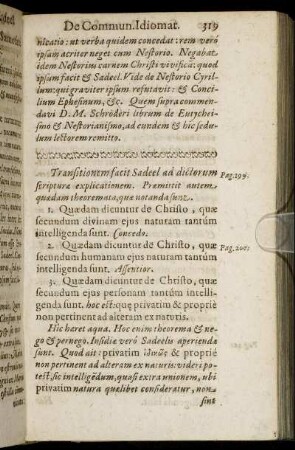 De Commun. Idiomat. 319
nicatio: ut verba quidem concedat: rem verò
ipsam acriter neget cum Nestorio. Negabat
idem Nestorius carnem Christi vivificã: quod
ipsum facit & Sadeel. Vide de Nestorio Cyril-
lum: qui graviter ipsum refutavit: & Conci-
lium Ephesinum, &c. Quem supra commen-
davi D. M. Schröderi librum de Eutychei-
smo & Nestorianismo, ad eundem & hic sedu-
lum lectorem remitto.
Transitionem facit Sadeel ad dictorum Pag. 199.
scripturæ explicationem. Præmittit autem
quædam theoremata, quæ notanda sunt.
1. Quædam dicuntur de Christo, quæ
secundum divinam ejus naturam tantùm
intelligenda sunt. Concedo.
2. Quædam dicuntur de Christo, quæ Pag. 200.
secundum humanam ejus naturam tantùm
intelligenda sunt. Assentior.
3. Quædam dicuntur de Christo, quæ
secundum ejus personam tantùm intelli-
genda sunt. hoc est: que privatim & propriè
non pertinent ad alteram ex naturis.
Hic hæret aqua. Hoc enim theorema & ne-
go & pernego. Insidiæ verò Sadeelis aperiendæ
sunt. Quod ait: privatim ἰδικῶς & propriè
non pertinent ad alteram ex naturis: videri po-
test, sic intelligẽdum, quasi extra unionem, ubi
privatim natura quælibet consideratur, non
sint